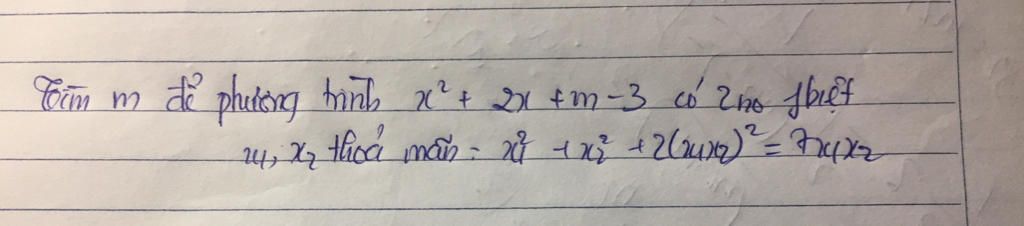 Tìm m để phương trình x² + 2x + m - 3 có 2 no pbiệt
x₁, x₂ thoả mãn: x₁² + x₂² + 2(x₁x₂)² = 7x₁x₂